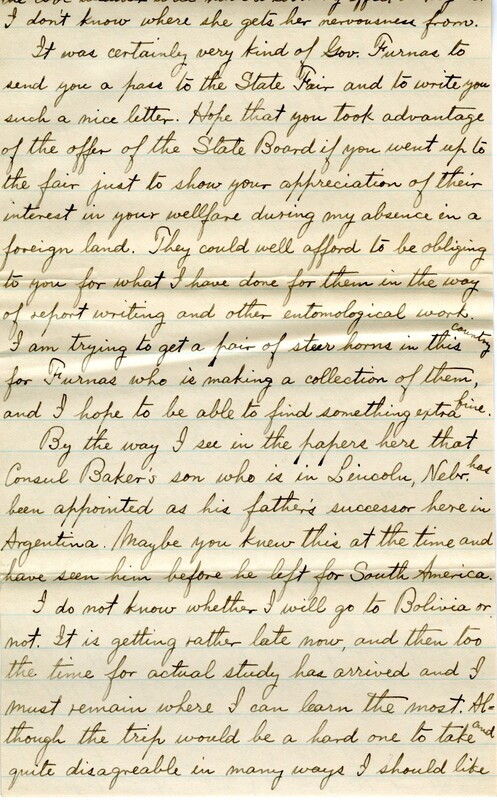 I don't know where she gets her nervousness from.
It was certainly very kind of Gov. Furnas to
send you a pass to the State Fair and to write you
such a nice letter. Hope that you took advantage
of the offer of the State Board if you went up to
the fair just to show your appreciation of their
interest in your wellfare during my absence in a
foreign land. They could well afford to be obliging
to you for what I have done for them in the way
of report writing and other entomological work.
I am trying to get a pair of steer horns in this country
for Furnas who is making a collection of them,
and I hope to be able to find something extra fine.
By the way I see in the papers here that
Consul Baker's son who is in Lincoln, Nebr. has
been appointed as his father's successor here in
Argentina. Maybe you knew this at the time and
have seen him before he left for South America.
I do not know whether I will go to Bolivia or
not. It is getting rather late now, and then too
the time for actual study has arrived and I
must remain where I can learn the most. Al=
though the trip would be a hard one to take and
quite disagreable in many ways I should like